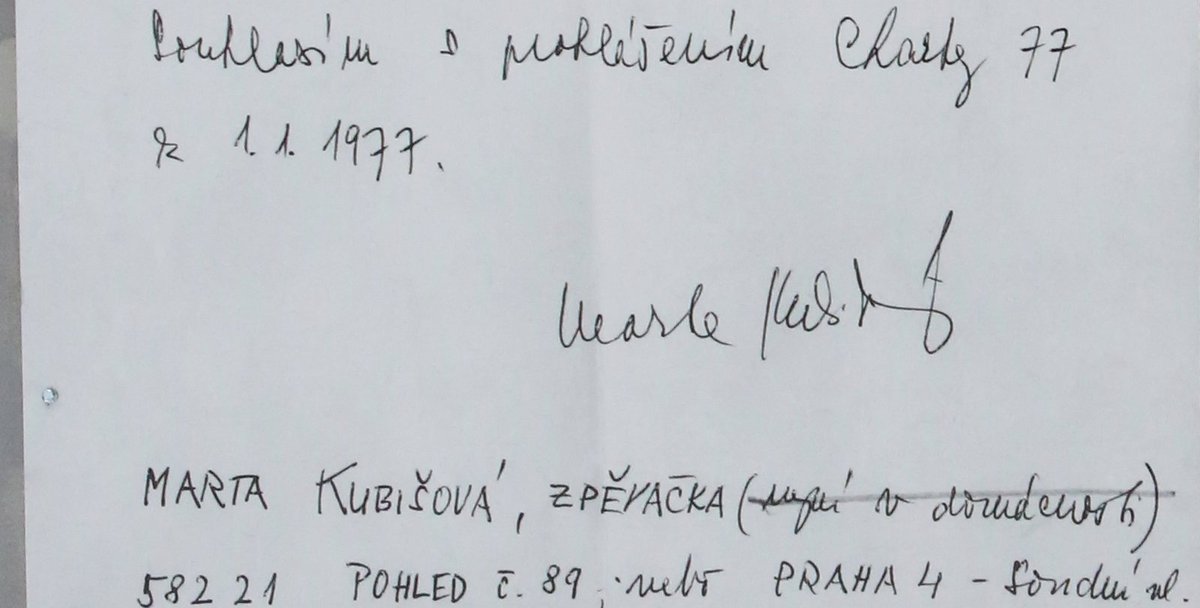 Souhlasím s prohlášením Charty 77
z 1.1. 1977.
Marta Kubišová
MARTA KUBIŠOVÁ, ZPĚVAČKA (nyní v domácnosti)
582 21 POHLED č. 89, nebo PRAHA 4 - ul.